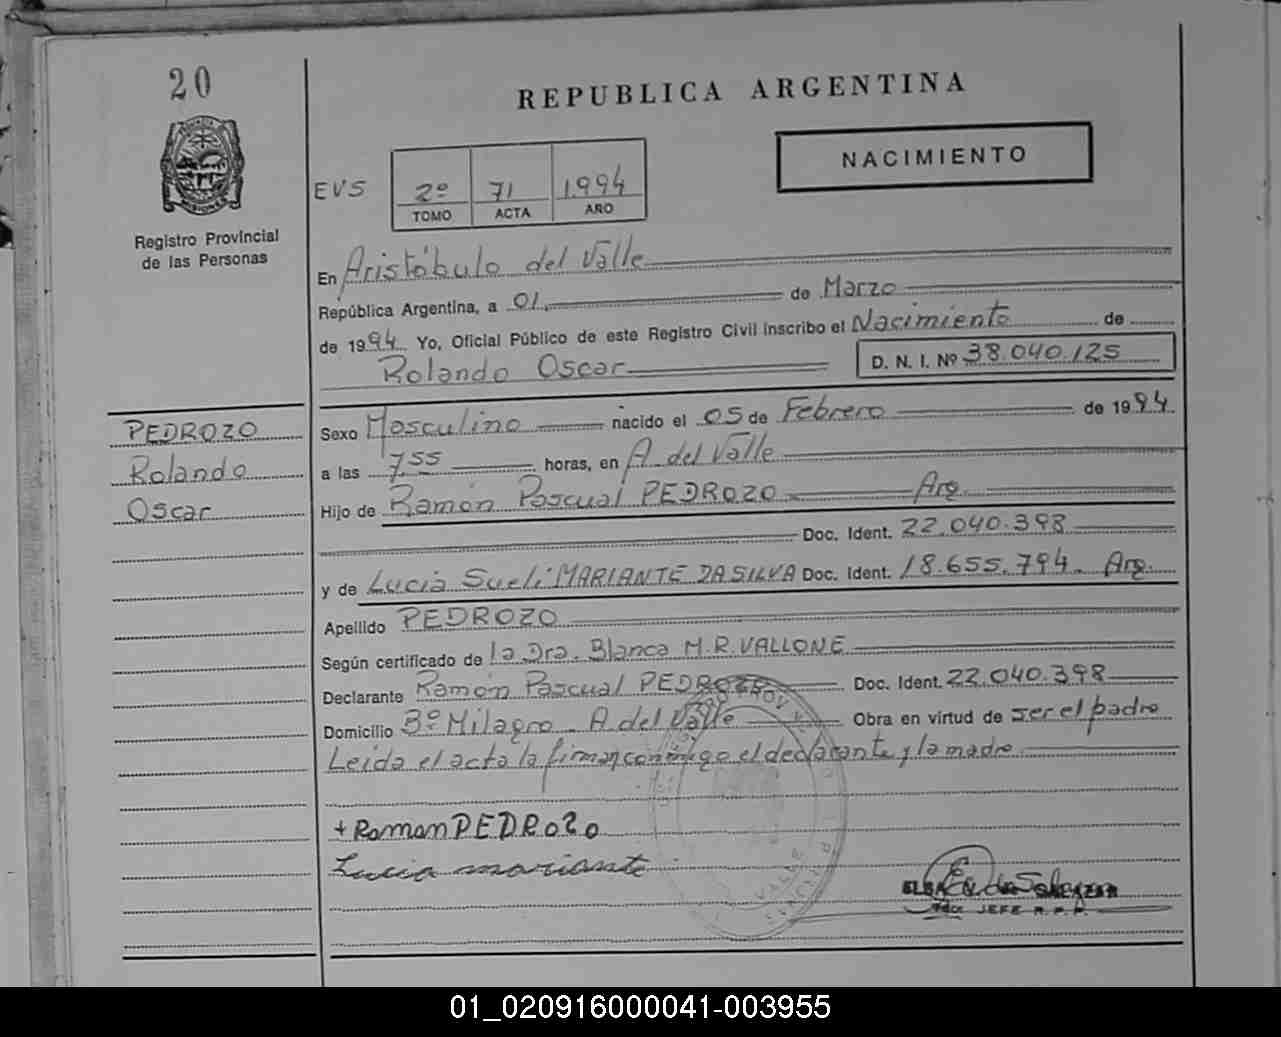 20
REPUBLICA ARGENTINA
NACIMIENTO
MISIONES
Registro Provincial
de las Personas
EVS
2º 71 1.994
TOMO ACTA AÑO
En Aristóbulo del Valle
República Argentina, a 01. de Marzo
de 1994. Yo, Oficial Público de este Registro Civil inscribo el Nacimiento de
Rolando Oscar D. N. I. Nº 38.040.125
PEDROZO
Rolando
Oscar
Sexo Masculino nacido el 05 de Febrero de 1994.
a las 7,55 horas, en A. del Valle
Hijo de Ramón Pascual PEDROZO Arg.
Doc. Ident. 22.040.398
y de Lucia Sueli MARIANTE DA SILVA Doc. Ident. 18.655.794. Arg.
Apellido PEDROZO
Según certificado de la Dra. Blanca M.R. VALLONE
Declarante Ramón Pascual PEDROZO Doc. Ident. 22.040.398
Domicilio Bº Milagro - A. del Valle Obra en virtud de ser el padre
Leida el acta la firman conmigo el declarante y la madre
+ Ramon PEDROZO
Lucia mariante
JEFE R.P.P.
01_020916000041-003955